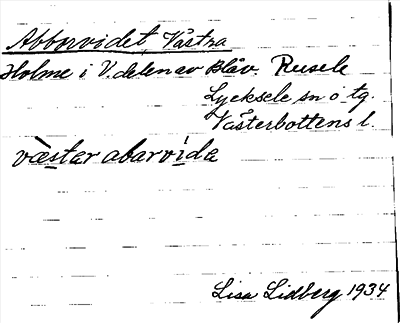 Abborvidet, Västra
Holme i V. delen av Blåv. Rusele
Lycksele sn o tg.
Västerbottens l.
vӕstar abarvida
Lisa Lidberg 1934